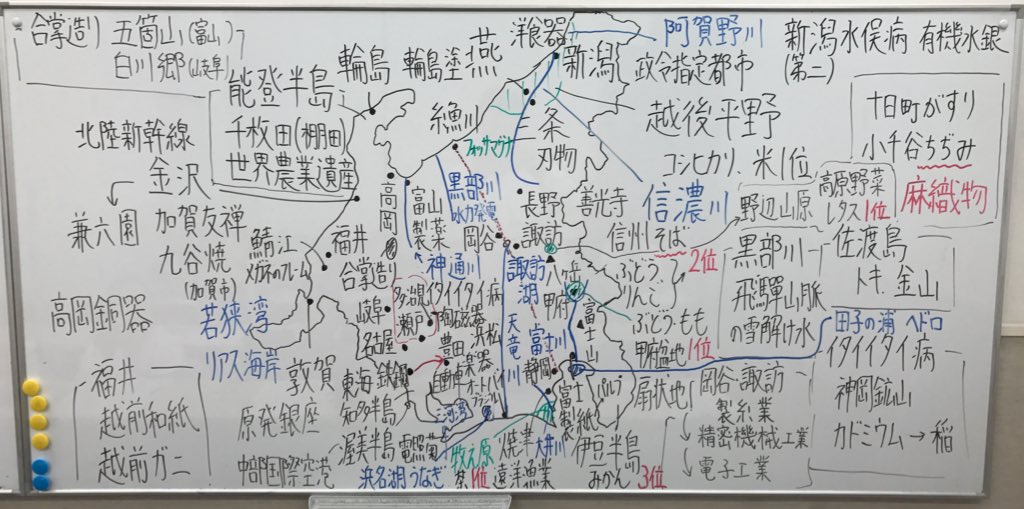 合掌造り 五箇山(富山)
白川郷(岐阜)
能登半島
千枚田(棚田)
世界農業遺産
輪島 輪島塗
燕 洋食器
新潟
阿賀野川
政令指定都市
新潟水俣病 有機水銀
(第二)
越後平野
コシヒカリ、米1位
十日町がすり
小千谷ちぢみ
麻織物
糸魚川
フォッサマグナ
三条
刃物
北陸新幹線
金沢
兼六園
加賀友禅
九谷焼
(加賀市)
高岡銅器
鯖江
メガネのフレーム
若狭湾
リアス海岸
福井
高岡
富山
製薬
黒部川
水力発電
神通川
イタイイタイ病
合掌造り
岐阜
名古屋
多治見
瀬戸
陶磁器
岡谷
長野
善光寺
諏訪
信州そば
信濃川
野辺山原
高原野菜
レタス1位
諏訪湖
天竜川
八ヶ岳
甲府
ぶどう
りんご
2位
ぶどう・もも
甲府盆地 1位
扇状地
黒部川
飛騨山脈
の雪解け水
佐渡島
トキ 金山
田子の浦 ヘドロ
イタイイタイ病
神岡鉱山
カドミウム→稲
岡谷・諏訪
製糸業
精密機械工業
電子工業
富士山
富士川
静岡
富士
製紙
パルプ
浜松
楽器
オートバイ
豊田
自動車
東海 鉄鋼
知多半島
渥美半島 電照菊
三河湾
浜名湖うなぎ
牧之原
茶1位
焼津
遠洋漁業
大井川
伊豆半島
みかん 3位
敦賀
原発銀座
中部国際空港
福井
越前和紙
越前ガニ